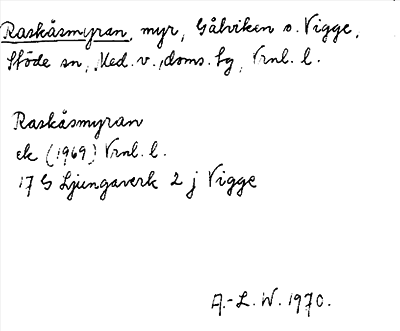 Raskåsmyran, myr, Gålviken o. Vigge,
Stöde sn, Med. v., doms. lg, Vrnl. l.
Raskåsmyran
ek (1969) Vrnl. l.
17 G Ljungaverk 2 j Vigge
A.-L. W. 1970.